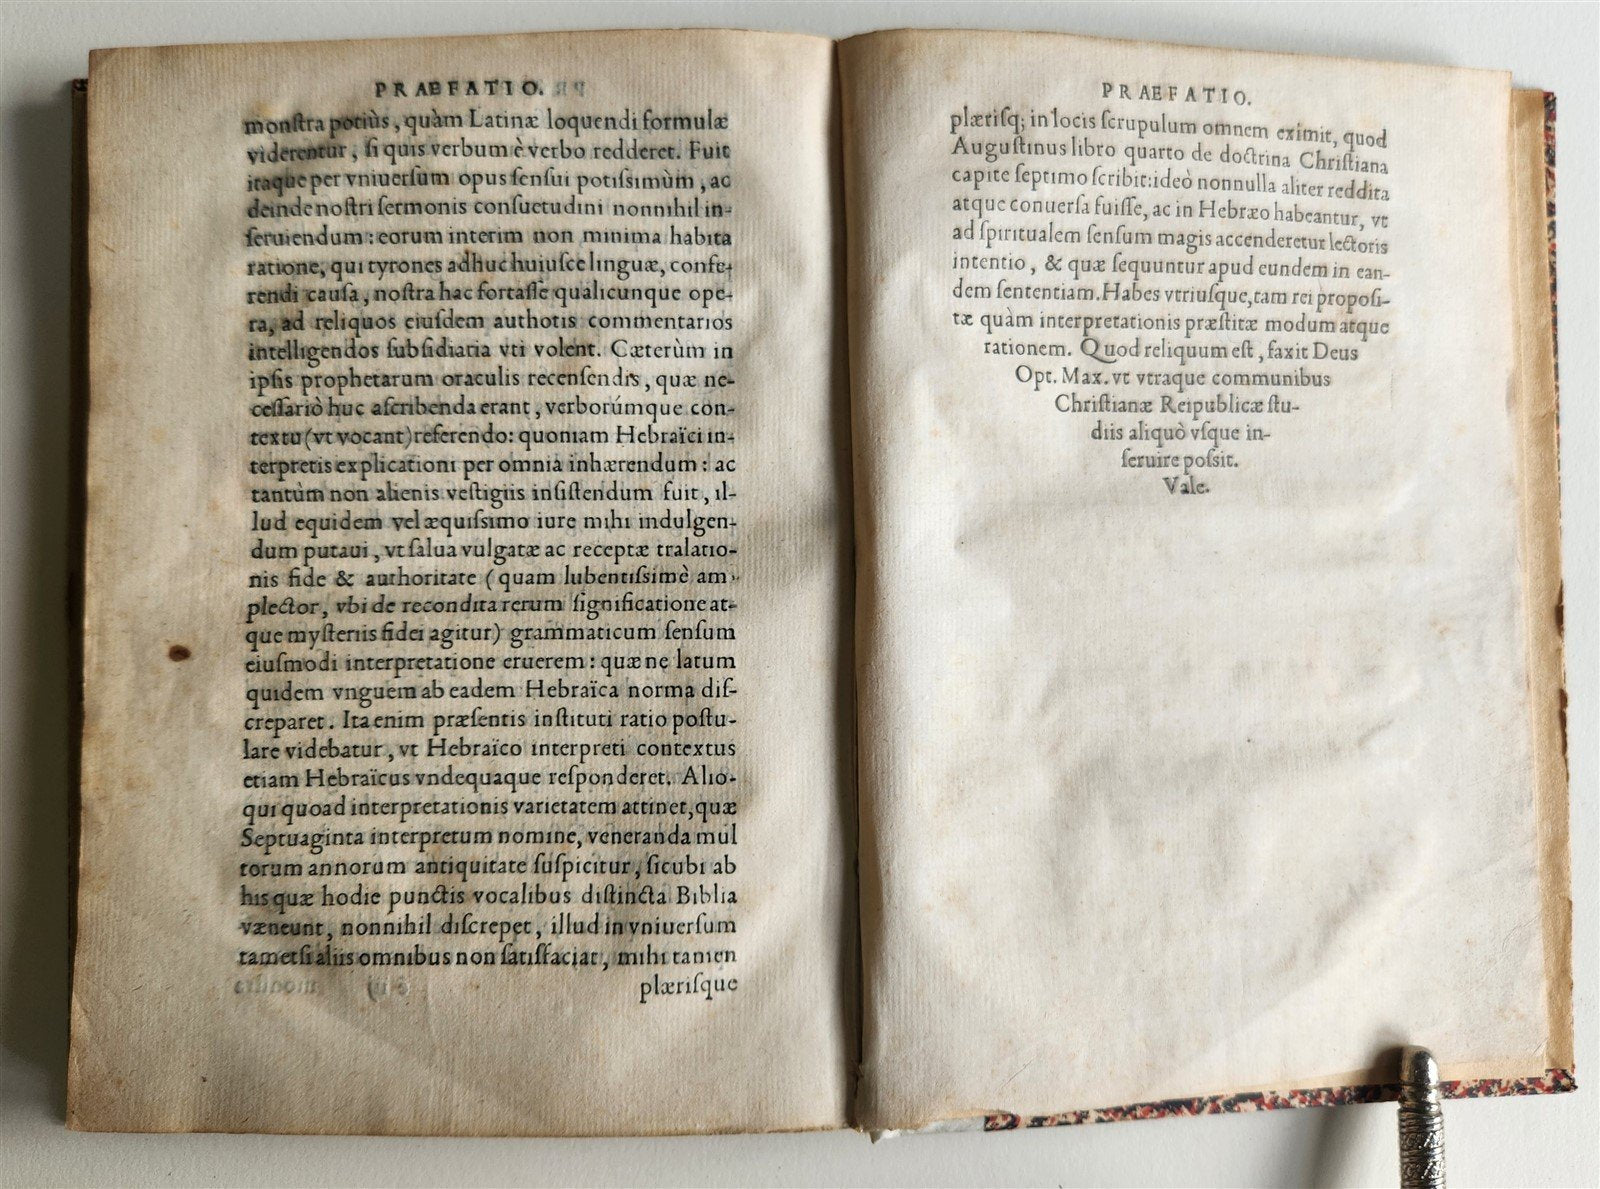 PRAEFATIO.
monſtra potiùs, quàm Latinæ loquendi formulæ
viderentur, ſi quis verbum è verbo redderet. Fuit
itaque per vniuerſum opus ſenſui potiſsimùm, ac
deinde noſtri ſermonis conſuetudini nonnihil in-
ſeruiendum: eorum interim non minima habita
ratione, qui tyrones adhuc huiuſce linguæ, confe-
rendi cauſa, noſtra hac fortaſſe qualicunque ope-
ra, ad reliquos eiuſdem authotis commentarios
intelligendos ſubſidiatia vti volent. Cæterùm in
ipſis prophetarum oraculis recenſendis, quæ ne-
ceſſariò huc aſcribenda erant, verborúmque con-
textu (vt vocant) referendo: quoniam Hebraïci in-
terpretis explicationi per omnia inhærendum: ac
tantùm non alienis veſtigiis inſiſtendum fuit, il-
lud equidem vel æquiſsimo iure mihi indulgen-
dum putaui, vt ſalua vulgatæ ac receptæ tralatio-
nis fide & authoritate (quam lubentiſsimè am-
plector, vbi de recondita rerum ſignificatione at-
que myſteriis fidei agitur) grammaticum ſenſum
eiuſmodi interpretatione eruerem: quæ ne latum
quidem vnguem ab eadem Hebraïca norma diſ-
creparet. Ita enim præſentis inſtituti ratio poſtu-
lare videbatur, vt Hebraïco interpreti contextus
etiam Hebraïcus vndequaque reſponderet. Alio-
qui quoad interpretationis varietatem attinet, quæ
Septuaginta interpretum nomine, veneranda mul
torum annorum antiquitate ſuſpicitur, ſicubi ab
his quæ hodie punctis vocalibus diſtincta Biblia
væneunt, nonnihil diſcrepet, illud in vniuerſum
tametſi aliis omnibus non ſatiſfaciat, mihi tamen
plæriſque
PRAEFATIO.
plæriſq; in locis ſcrupulum omnem eximit, quod
Auguſtinus libro quarto de doctrina Chriſtiana
capite ſeptimo ſcribit: ideò nonnulla aliter reddita
atque conuerſa fuiſſe, ac in Hebræo habeantur, vt
ad ſpiritualem ſenſum magis accenderetur lectoris
intentio, & quæ ſequuntur apud eundem in ean-
dem ſententiam. Habes vtriuſque, tam rei propoſi-
tæ quàm interpretationis præſtitæ modum atque
rationem. Quod reliquum eſt, faxit Deus
Opt. Max. vt vtraque communibus
Chriſtianæ Reipublicæ ſtu-
diis aliquò vſque in-
ſeruire poſsit.
Vale.